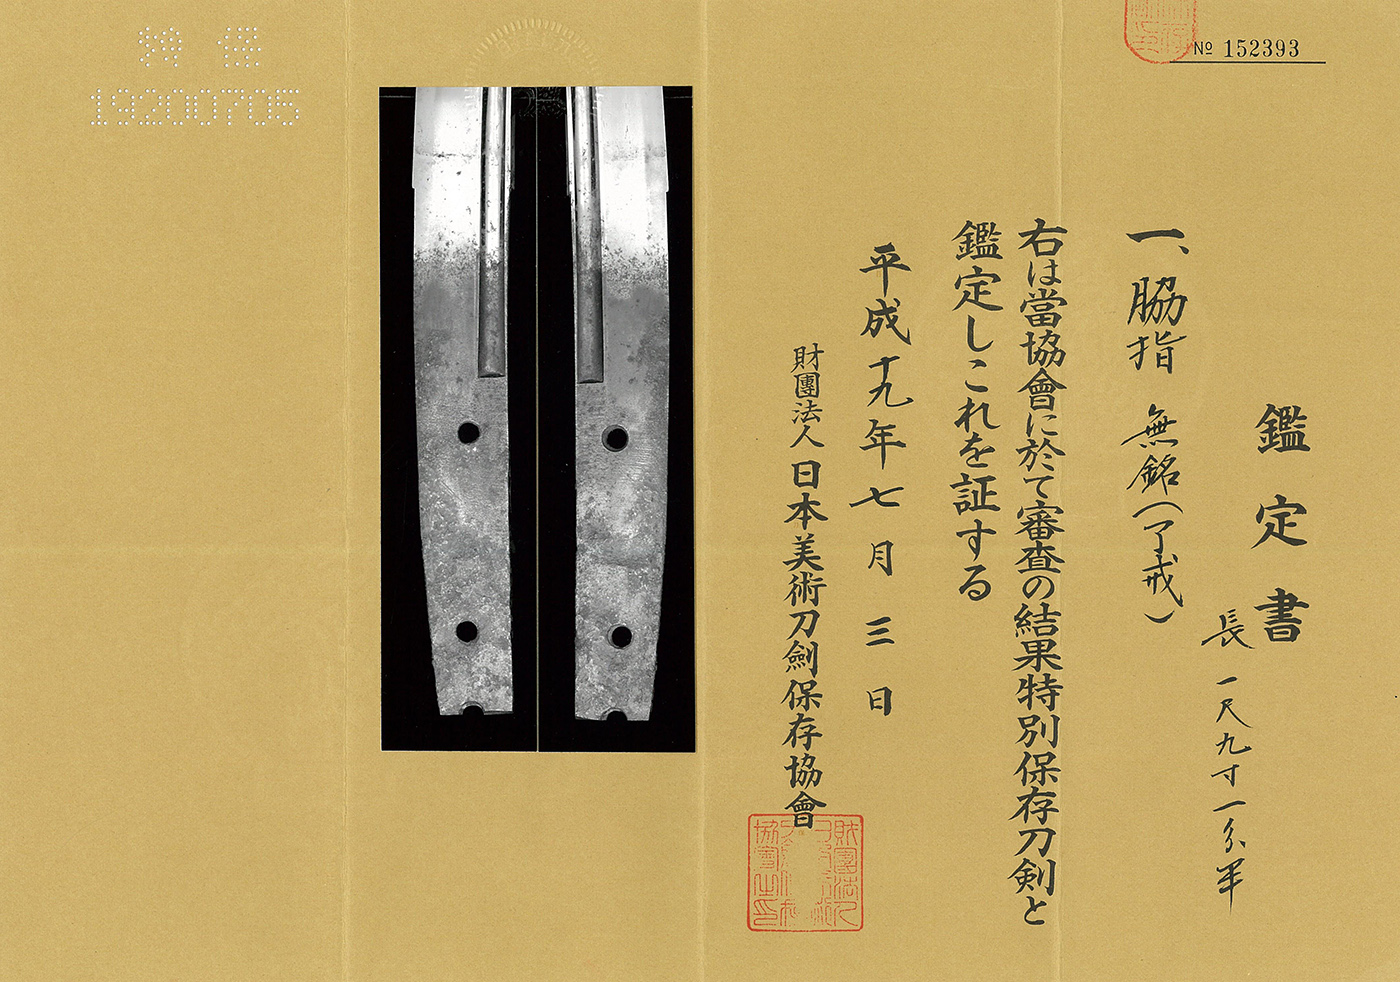 No 152393
鑑定書
長 一尺九寸一分半
一、脇指 無銘(了戒)
右は當協會に於て審査の結果特別保存刀剣と
鑑定しこれを証する
平成十九年七月三日
財團法人 日本美術刀劍保存協會
特 保
19200705